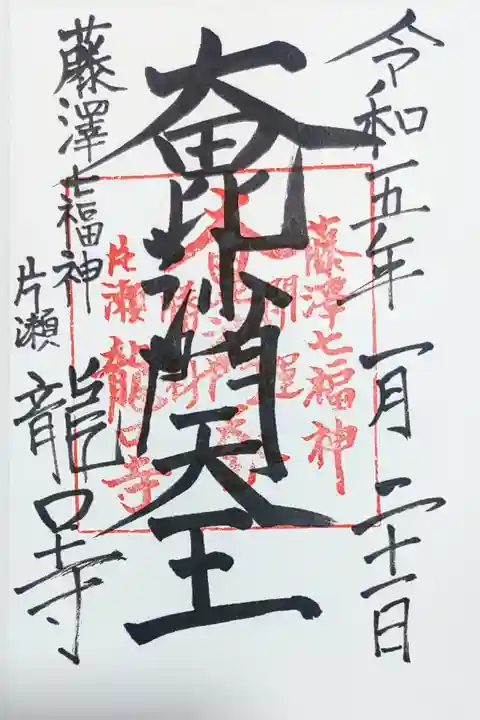 令和五年 一月 二十一日
大毘沙門天王
藤澤七福神
片瀬 龍口寺
藤澤七福神
開運
片瀬 龍口寺